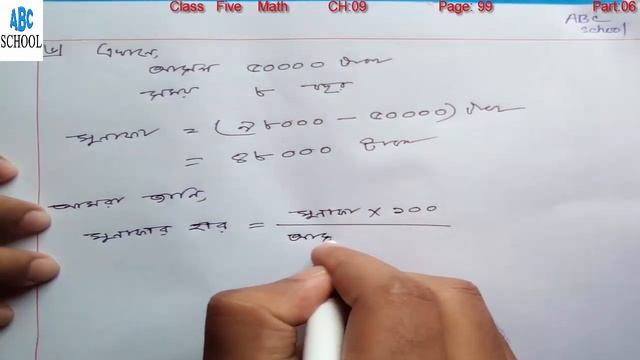 ABC
SCHOOL
Class Five Math CH:09 Page: 99 Part:06
ABC
School
এখানে,
আসল ৫০০০০ টাকা
সময় ৮ বছর
মুনাফা = (৯৮০০০ - ৫০০০০) টাকা
= ৪৮০০০ টাকা
আমরা জানি,
মুনাফার হার = মুনাফা × ১০০
আস